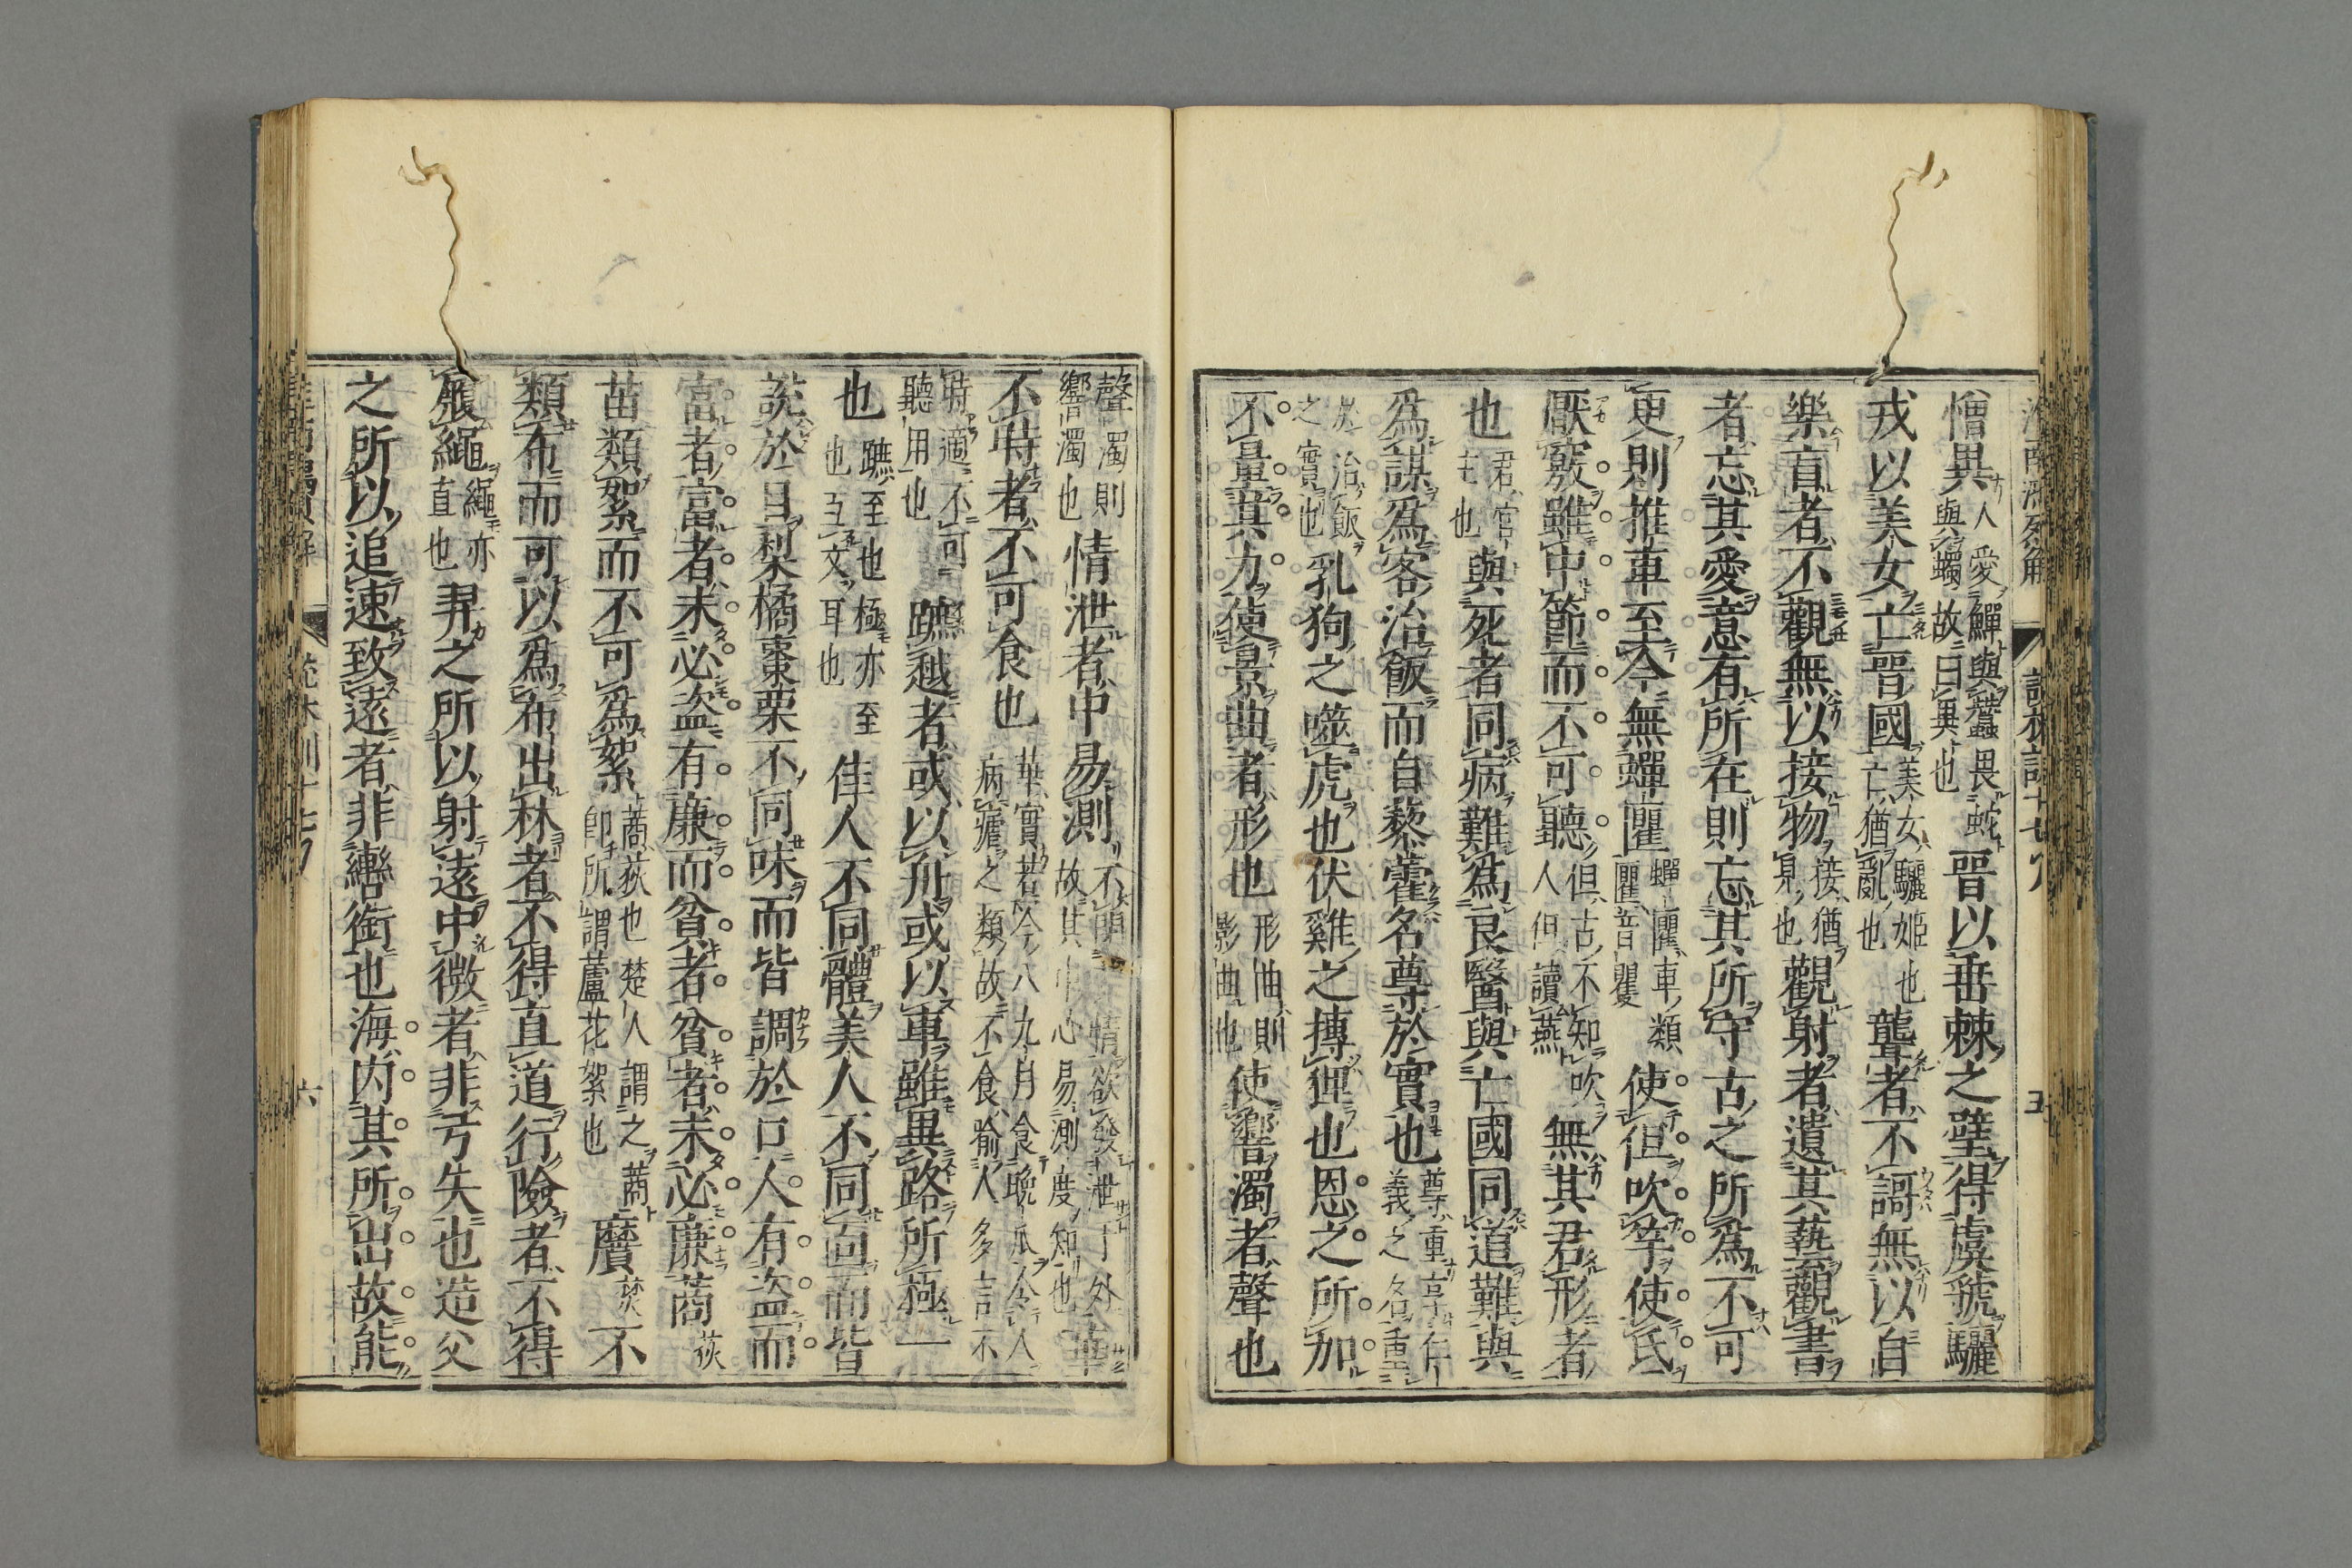 憎異人愛鱓與蠶畏蛇與蠋故曰異也晉以垂棘之璧得虞虢驪
戎以美女亡晉國美女驪姬也亡猶亂也聾者不謌無以自
樂盲者不觀無以接物接猶見也觀射者遺其藝觀書
者忘其愛意有所在則忘其所守古之所爲不可
更則推車至今無蟬匷蟬匷車類匷音矍使但吹竽使氏
厭竅雖中節而不可聽但古不知吹人但讀燕無其君形者
也君官主也與死者同病難爲良醫與亡國同道難與
爲謀爲客治飯而自藜藿名尊於實也尊重享仁義之名重
於治飯之實也乳狗之噬虎也伏雞之搏狸也恩之所加
不量其力使景曲者形也形曲則影曲也使響濁者聲也
聲濁則響濁也情泄者中易測不閉情欲發泄于外故其中心易測度知也華
不時者不可食也華實若今八九月食晚瓜令人病瘧之類故不食喻人多言不
時適不可聽用也蹠越者或以舟或以車雖異路所極一
也蹠至也極亦至也互文耳也佳人不同體美人不同面而皆
說於目梨橘棗栗不同味而皆調於口人有盜而
富者富者未必盜有廉而貧者貧者未必廉蔐荻
苗類絮而不可爲絮蔐荻也楚人謂之蔐卽所謂蘆花絮也黂葼不
類布而可以爲布出林者不得直道行險者不得
履繩繩亦直也羿之所以射遠中微者非弓矢也造父
之所以追速致遠者非轡銜也海内其所出故能
六